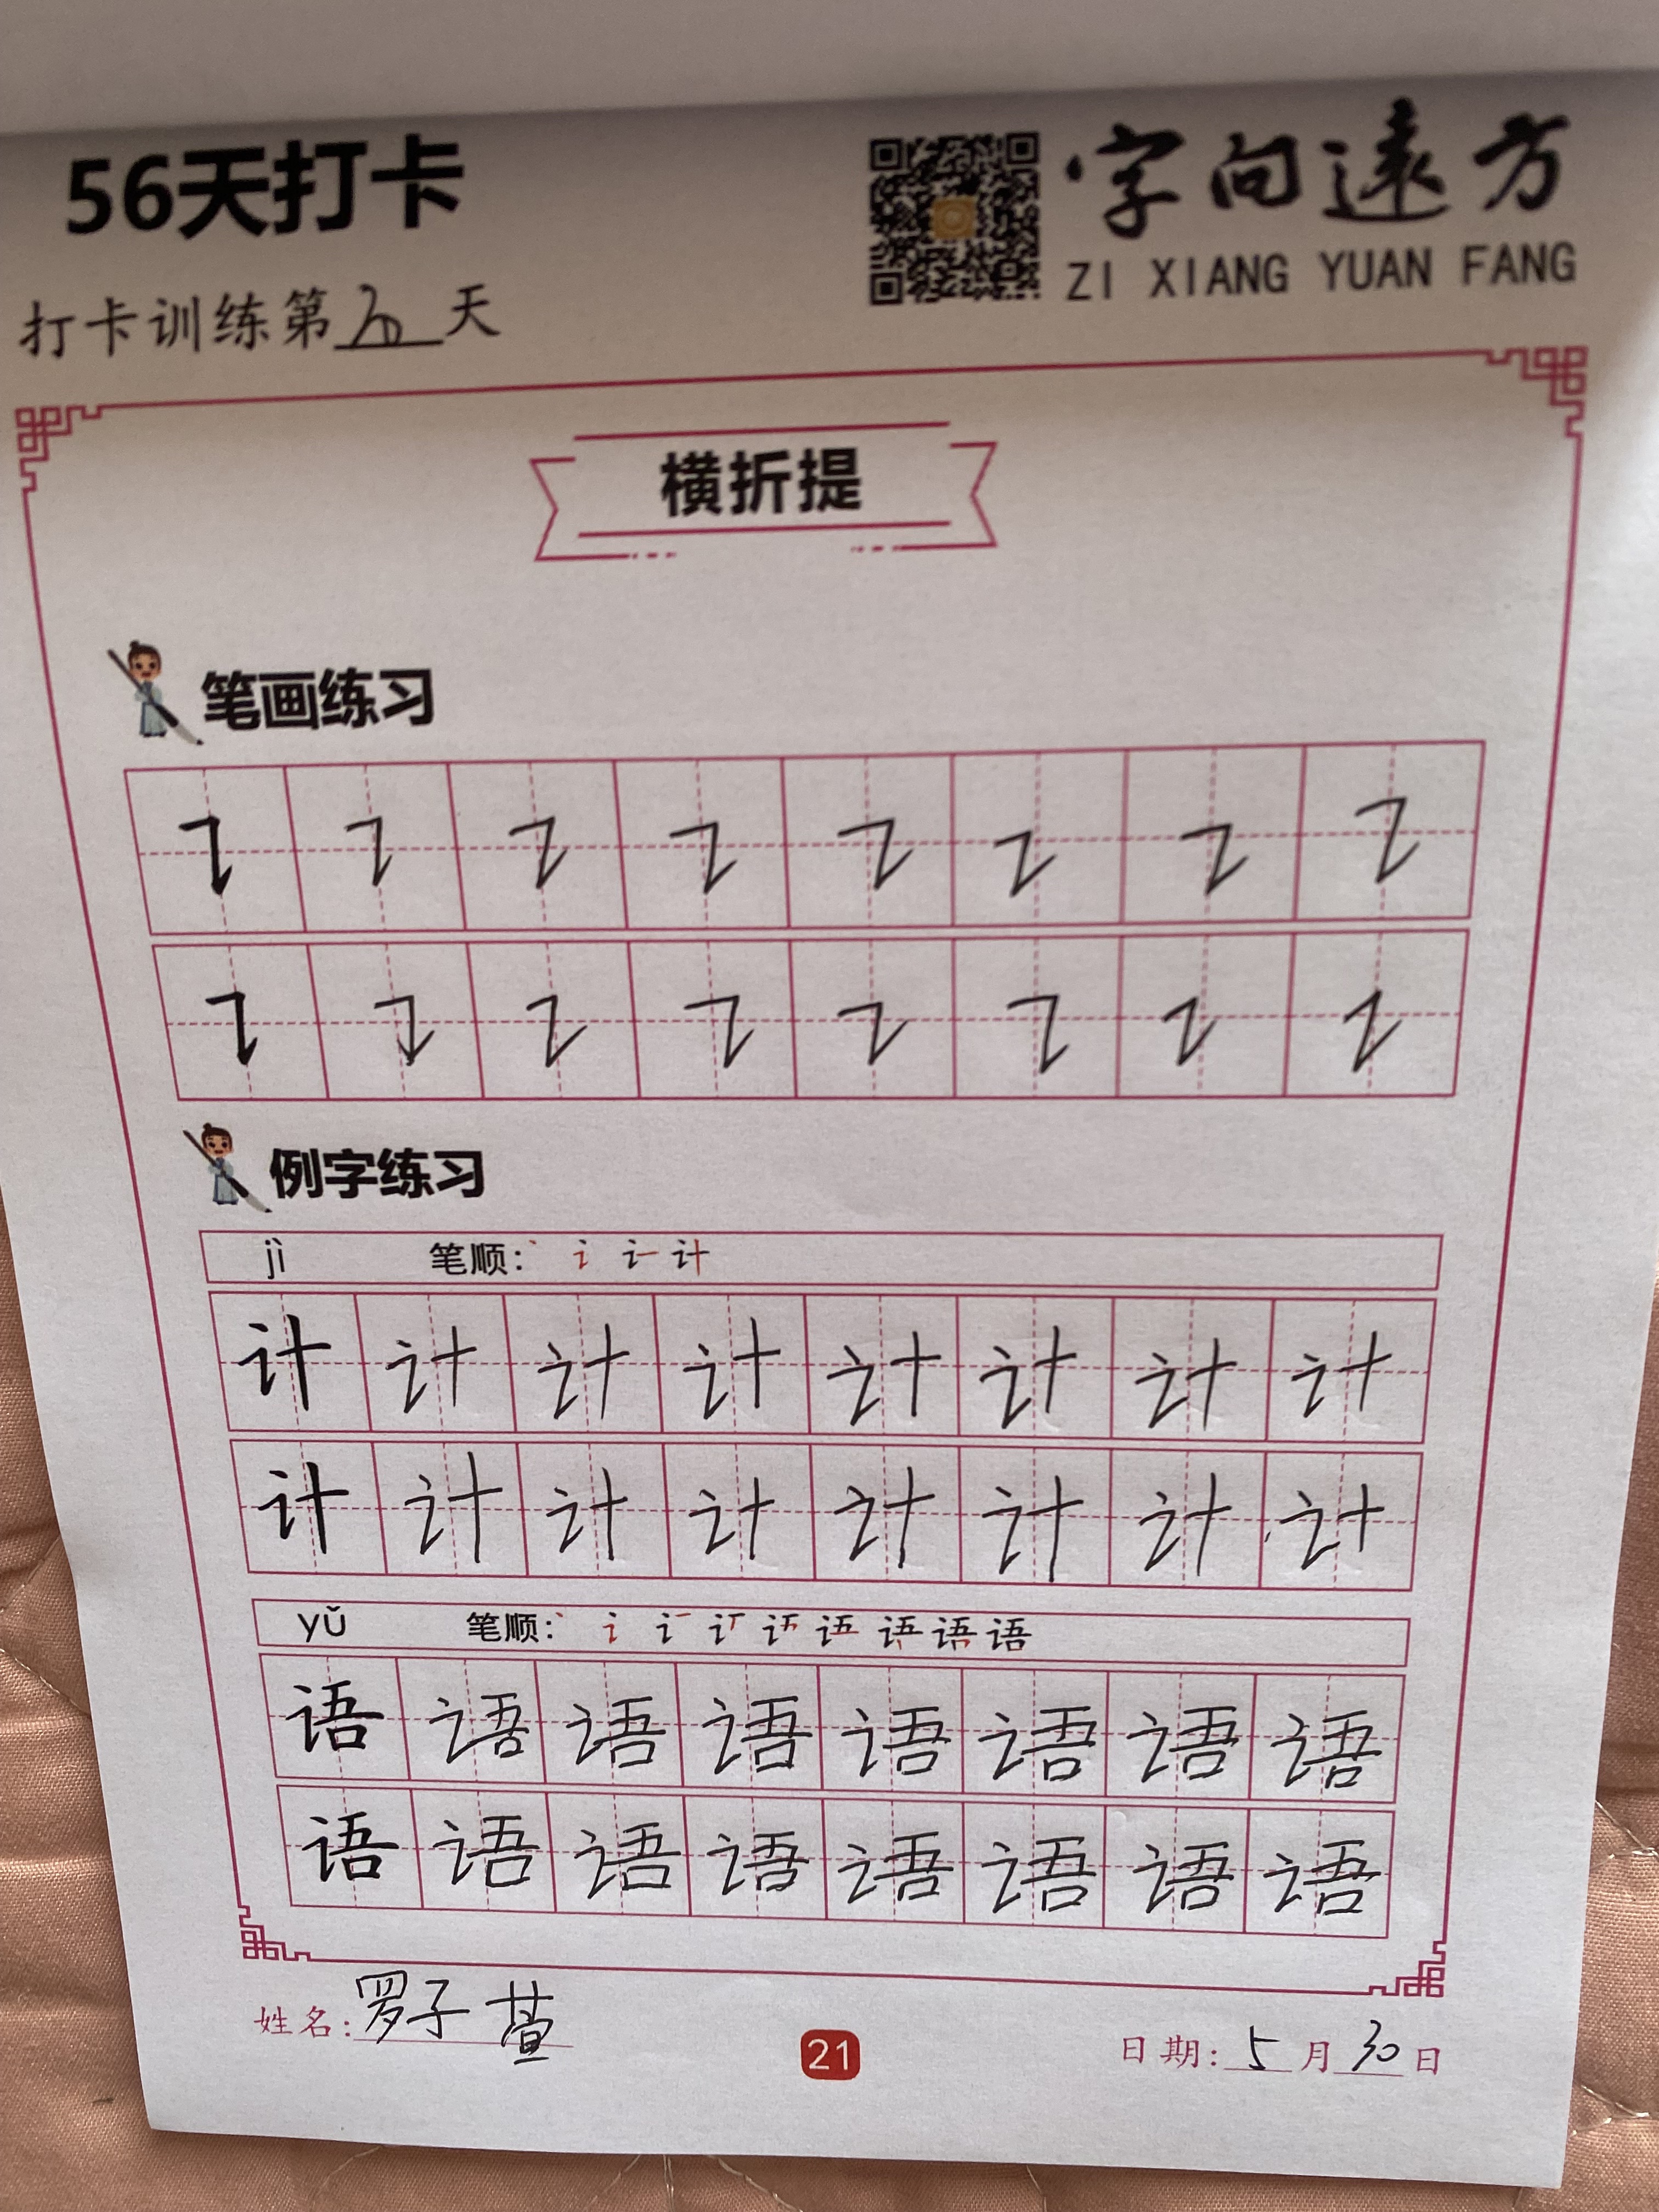 56天打卡
字向遠方
ZI XIANG YUAN FANG
打卡训练第20天
横折提
笔画练习
例字练习
jì 笔顺:
计 计 计 计 计 计 计 计
计 计 计 计 计 计 计 计
yǔ 笔顺: 语
语 语 语 语 语 语 语 语
语 语 语 语 语 语 语 语
姓名:罗子萱
21
日期:5月30日